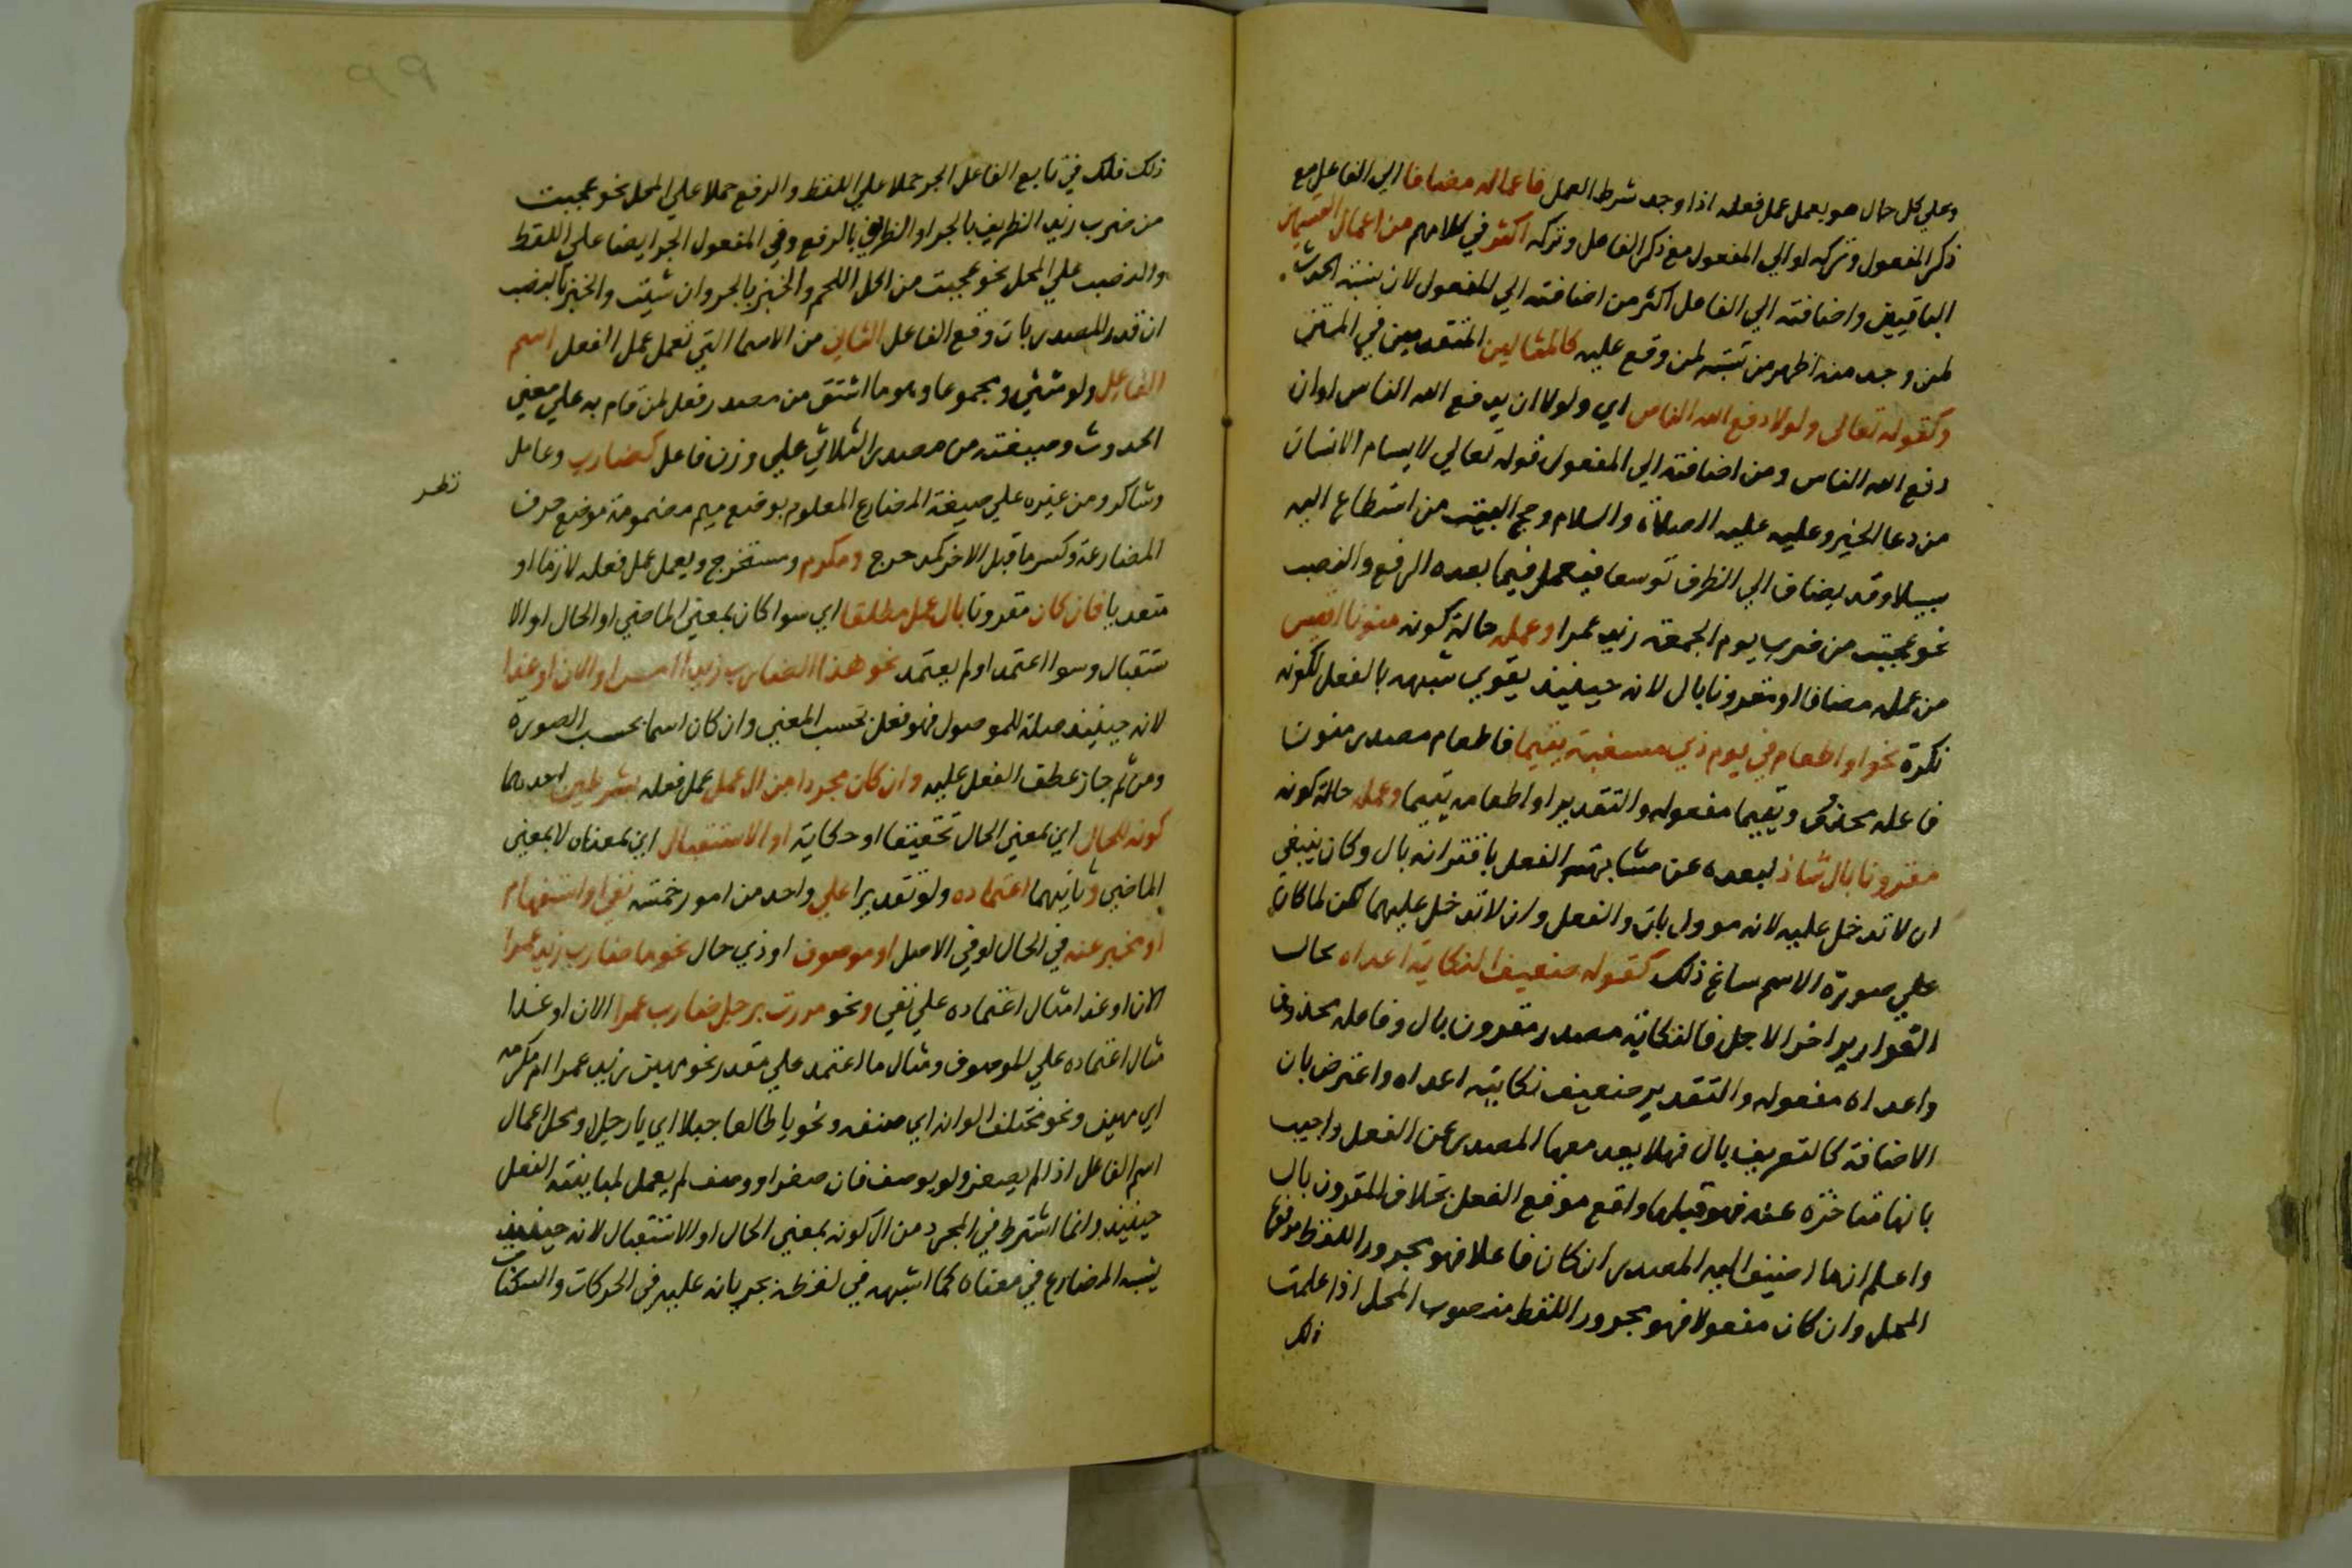 وعلي كل حال هو يعمل عمل فعله اذا وجد شرط العمل فاعماله مضافا الي الفاعل مع
ذكر المفعول وتركه او الي المفعول مع ذكر الفاعل وتركه اكثر في كلامهم من اعمال القسمين
الباقيين واضافته الي الفاعل اكثر من اضافته الي المفعول لان نسبة الحدث
لمن وجد منه اظهر من نسبته لمن وقع عليه كالمثالين المتقدمين في المتن
وكقوله تعالى ولولا دفع الله الناس اي ولولا ان يدفع الله الناس او ان
دفع الله الناس ومن اضافته الي المفعول قوله تعالي لا يسام الانسان
من دعا الخير وعليه عليه الصلاة والسلام وحج البيت من استطاع اليه
سبيلا وقد يضاف الي الظرف توسعا فيعمل فيما بعده الرفع والنصب
نحو عجبت من ضرب يوم الجمعة زيد عمرا وعمله حالة كونه منونا اقيس
من عمله مضافا او مقرونا بال لانه حينيذ يقوي شبهه بالفعل لكونه
نكرة نحو او اطعام في يوم ذي مسغبة يتيما فاطعام مصدر منون
فاعله محذوف ويتيما مفعوله والتقدير او اطعامه يتيما وعمله حالة كونه
مقرونا بال شاذ لبعده عن مشابهته الفعل باقترانه بال وكان ينبغي
ان لا تدخل عليه لانه موول بان والفعل وان لا تدخل عليهما لكن لما كان
علي صورة الاسم ساغ ذلك كقوله ضعيف النكاية اعداه بحال
القوارير اخر الاجل فالنكاية مصدر مقرون بال وفاعله محذوف
واعداه مفعوله والتقدير ضعيف نكايته اعداه واعترض بان
الاضافة كالتعريف بال فهلا بعد معها المصدر عن الفعل واجيب
بانها متاخرة عنه فهو قبلها واقع موقع الفعل بخلاف المقرون بال
واعلم ان ما اضيف اليه المصدر ان كان فاعلا فهو مجرور اللفظ مرفوع
المحل وان كان مفعولا فهو مجرور اللفظ منصوب المحل اذا علمت
ذلك
ذلك فلك في تابع الفاعل الجر حملا علي اللفظ والرفع حملا علي المحل نحو عجبت
من ضرب زيد الظريف بالجر او الظريف بالرفع وفي المفعول الجر ايضا علي اللفظ
والنصب علي المحل نحو عجبت من اكل اللحم والخبز بالجر وان شيت والخبز بالنصب
ان قدر المصدر بان وقع الفاعل الثاني من الاسما التي تعمل عمل الفعل اسم
الفاعل ولو مثني ومجموعا وهو ما اشتق من مصدر فعل لمن قام به علي معني
الحدوث وصيغته من مصدر الثلاثي علي وزن فاعل كضارب وعامل
وشاكر ومن غيره علي صيغة المضارع المعلوم بوضع ميم مضمومة موضع حرف
المضارعة وكسر ما قبل الاخر كمدحرج ومكرم ومستخرج ويعمل عمل فعله لازما او
متعديا فان كان مقرونا بال عمل مطلقا اي سوا كان بمعني الماضي او الحال او الا
ستقبال وسوا اعتمد او لم يعتمد نحو هذا الضارب زيدا امس او الان او غدا
لانه حينيذ صلة للموصول فهو فعل بحسب المعني وان كان اسما بحسب الصورة
ومن ثم جاز عطف الفعل عليه وان كان مجردا من ال عمل عمل فعله بشرطين احدهما
كونه للحال اي بمعني الحال تحقيقا او حكاية او الاستقبال اي بمعناه لا بمعني
الماضي وثانيهما اعتماده ولو تقديرا علي واحد من امور خمسة نفي او استفهام
او مخبر عنه في الحال او في الاصل او موصوف او ذي حال نحو ما ضارب زيد عمرا
الان او غدا مثال اعتماده علي نفي ونحو مررت برجل ضارب عمرا الان او غدا
مثال اعتماده علي الموصوف ومثال ما اعتمد علي مقدر نحو مهين زيد عمرا ام مكرمه
اي امهين ونحو مختلف الوانه اي صنف ونحو يا طالعا جبلا اي يا رجلا ومحل اعمال
اسم الفاعل اذا لم يصغر ولو يوصف فان صغر او وصف لم يعمل لمباينته الفعل
حينيذ وانما اشترط في المجرد من ال كونه بمعني الحال او الاستقبال لانه حينيذ
يشبه المضارع في معناه كما اشبهه في لفظه بجريانه عليه في الحركات والسكنات